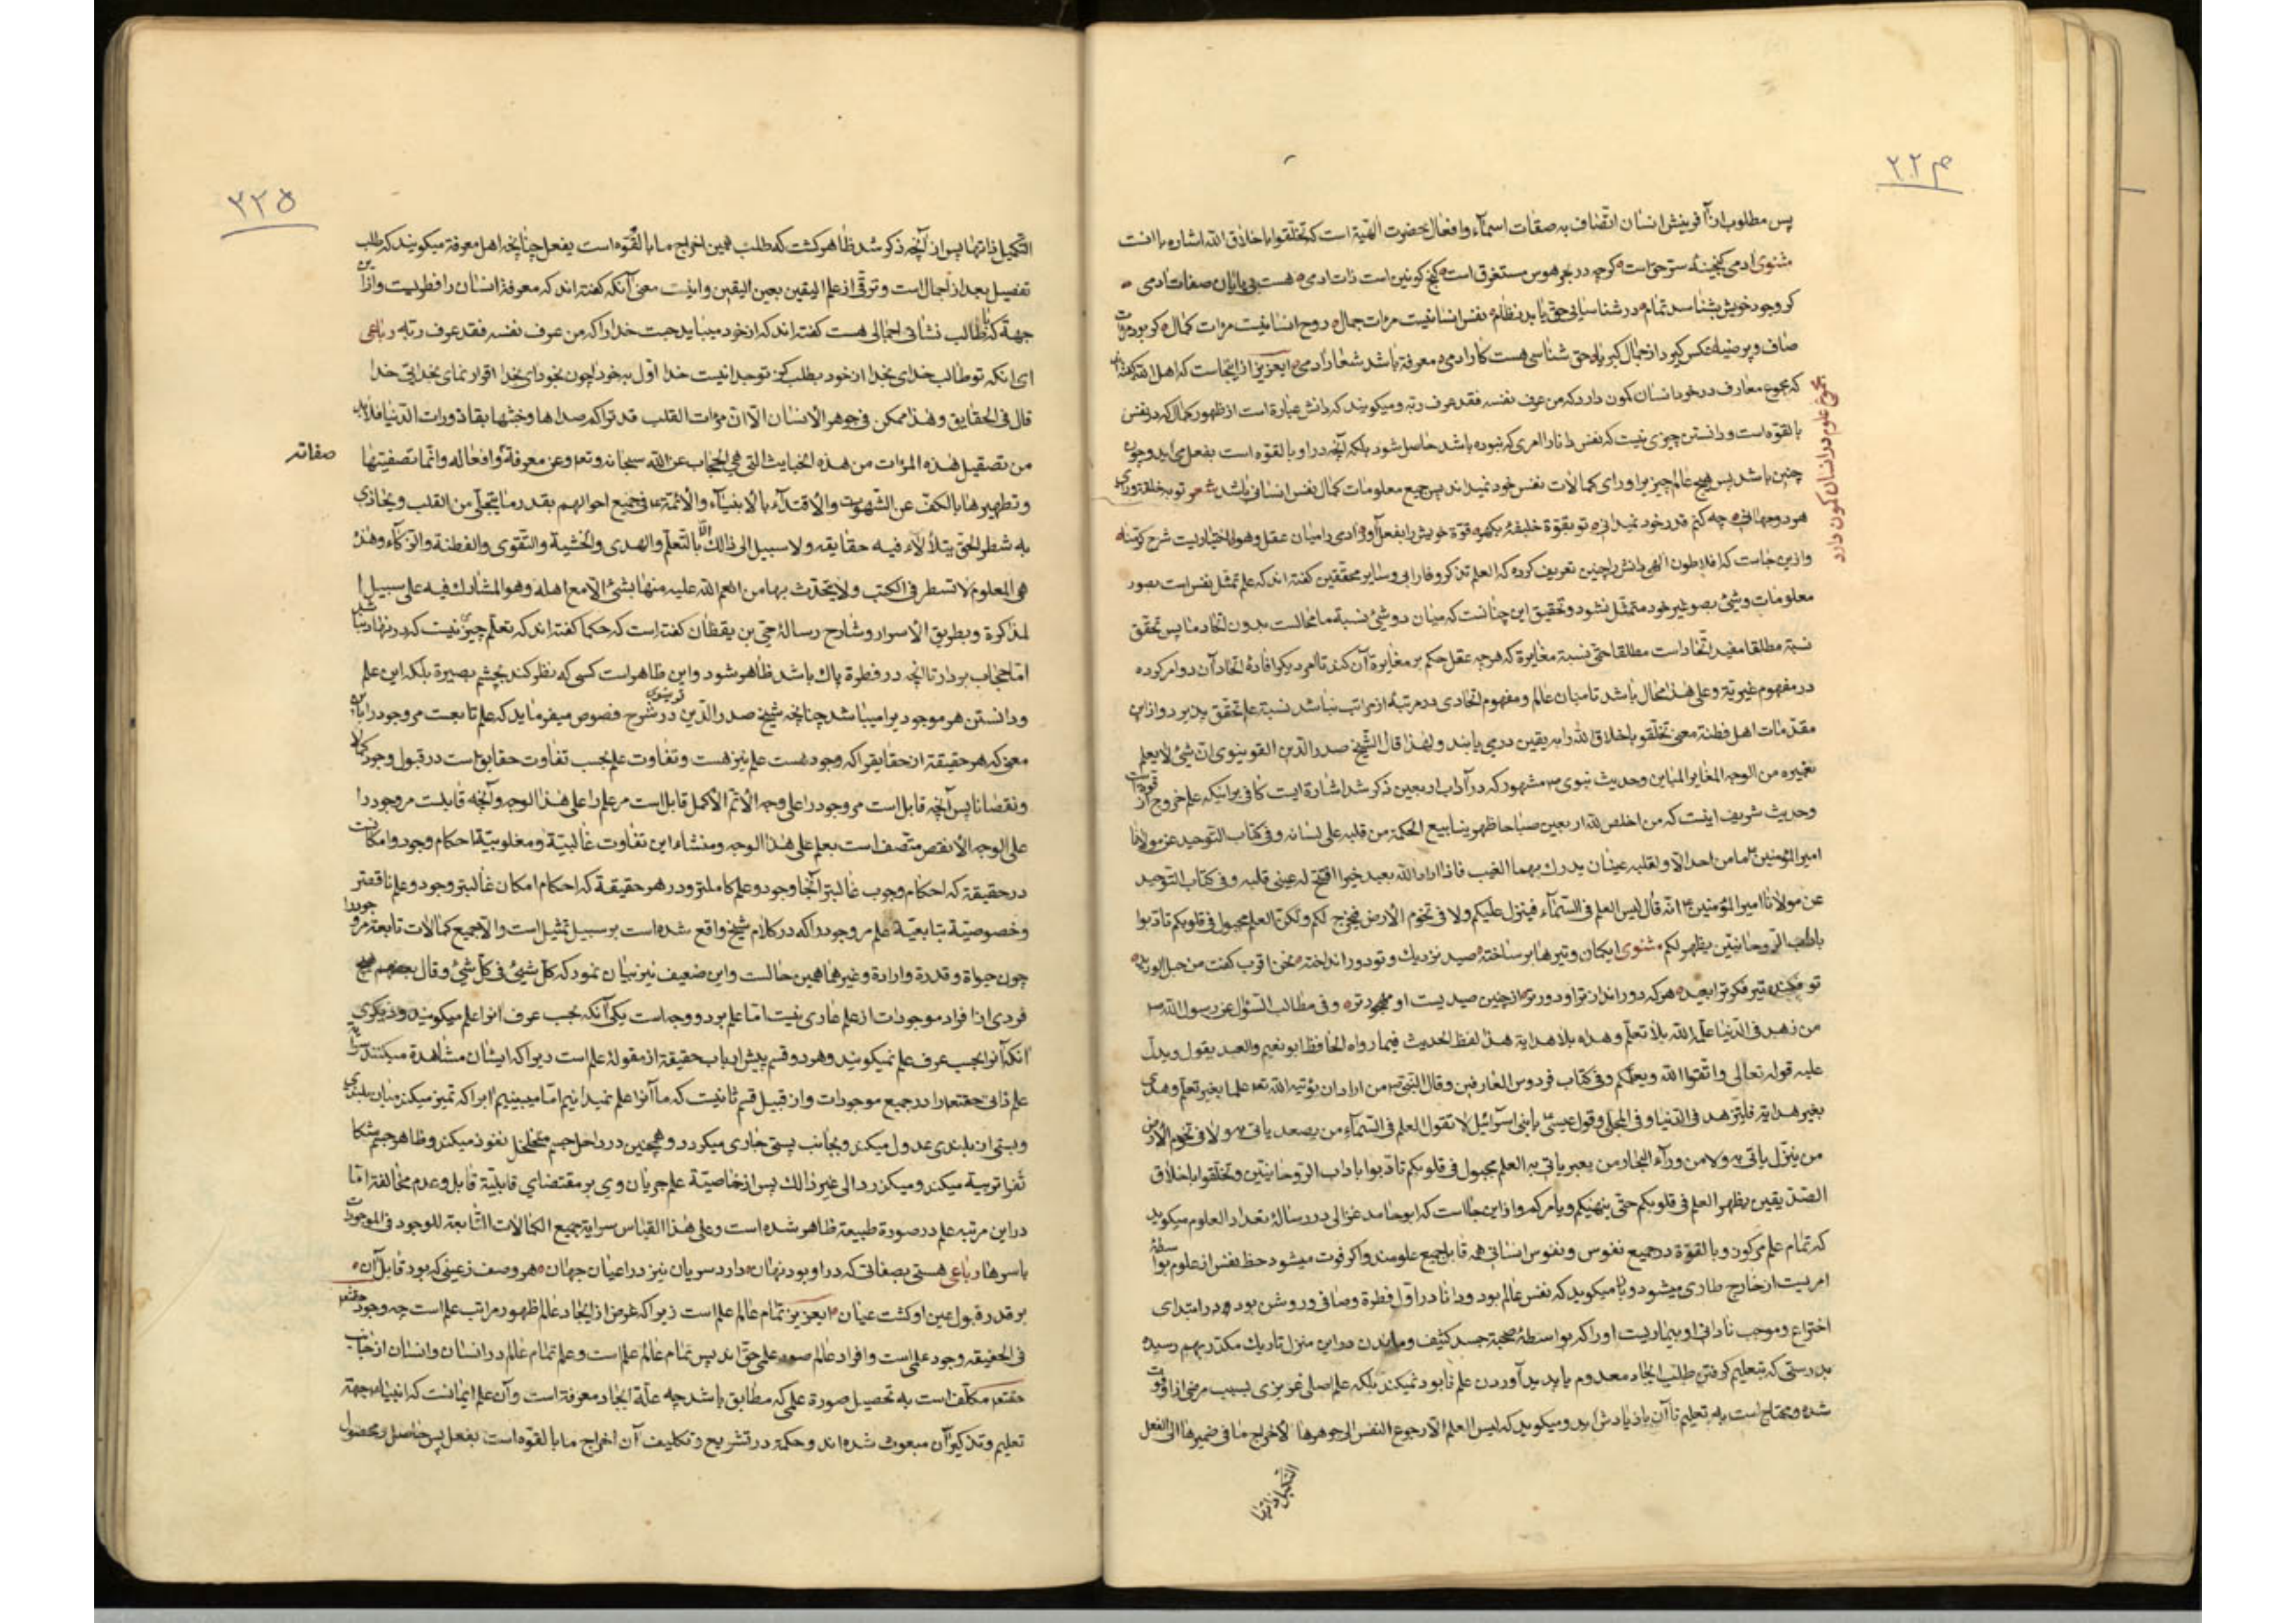 ۲۲۴
پس مطلوب از آفرینش انسان اتّصاف به صفات اسمآء و افعال حضرت الهیّة است که تخلّقوا باخلاق الله اشاره باانست
مثنوی ادمی کنجینهٔ سرّ حق است کرچه در بحر هوس مستغرق است کنج کونین است ذات ادمی هست بی پایان صفات ادمی
کر وجود خویش بشناسد تمام در شناسیائی حق یابد نظام نفس انسانیت مرات جمال روح انسانیت مرات کمال کر بود مرات
صاف و پر ضیا عکس کیرد از جمال کبریا حق شناسی هست کار ادمی معرفة باشد شعار ادمی ایعزیز از اینجاست که اهل الله کفته اند
که مجموع معارف در خود انسان کمون دارد که من عرف نفسه فقد عرف ربّه و میکویند که دانش عبارة است از ظهور کمال که در نفس
بالقوّه است و دانستن چیزی نیست که نفس دانا را امری که نبوده باشد حاصل شود بلکه آنچه در او بالقوّه است بفعل می اید و چون
چنین باشد پس هیچ عالم چیز برا ورای کمالات نفس خود نمیداند پس جمیع معلومات کمال نفس انسانی باشد شعر تو بخلقت ورای
هر دو جهانی چه کنم قدر خود نمیدانی تو بقوّة خلیفهٔ بکهر قوّة خویش را بفعل آور ادمی را میان عقل و هوا اختیاریست شرح کرّمنا
و ازین جاست که افلاطون الهی دانش را چنین تعریف کرده که العلم تذکر و فارابی و سایر محقّقین کفته اند که علم تمثّل نفس است بصور
معلومات و شیئ بصو غیر خود متمثّل نشود و تحقیق این چنانست که میان دو شیئ نسبة ما محالست بدون اتّحاد ما پس تحقّق
نسبة مطلقا مفید اتّحاد است مطلقا حتی نسبة مغایرة که هر چه عقل حکم بر مغایرة آن کند تا امر دیکر افادهٔ اتحاد آن دو امر کرده
در مفهوم غیریّة و علی هٰذا محال باشد تا میان عالم و مفهوم اتحادی در مرتبهٔ از مراتب نباشد نسبة علم تحقق پذیرد و از این
مقدّمات اهل فطنة معنی تخلّقوا باخلاق الله را به یقین در می یابند و لهٰذا قال الشّیخ صدر الدّین القونیوی انّ شیئ لا یعلم
بغیره من الوجه المغایر المباین و حدیث نبوی ص مشهور که در آداب اربعین ذکر شد اشارة ایست کافی بر اینکه علم خروج از قوّة است
و حدیث شریف اینست که من اخلص لله اربعین صباحا ظهر ینابیع الحکمة من قلبه علی لسانه و فی کتاب التوحید عن مولانا
امیر المؤمنین ع ما من احد الّا و لقلبه عینان یدرک بهما الغیب فاذا اراد الله بعبد خیرا افتح له عینی قلبه و فی کتاب التوحید
عن مولانا امیر المؤمنین ع انّه قال لیس العلم فی السّماء فینزل علیکم و لا فی تخوم الارض فیخرج لکم و لکن العلم مجبول فی قلوبکم تادّبوا
باداب الرّوحانیّین یظهر لکم مثنوی ایکمان و تیرها بر ساخته صید نزدیک و تو دور انداخته نحن اقرب کفت من حبل الورید
تو فکنده تیر فکرترا بعید هر که دور انداز تر او دور تر از چنین صیدیست او مهجور تر و فی مطالب السّؤل عن رسول الله ص
من زهد فی الدّنیا علّمه الله بلا تعلّم و هداه بلا هدایة هذا لفظ الحدیث فیما رواه الحافظ ابو نعیم و العبد یقول و یدلّ
علیه قوله تعالی و اتّقوا الله و یعلّمکم و فی کتاب فردوس العارفین و قال النّبی ص من اراد ان یؤتیه الله تعم علما بغیر تعلّم و هدی
بغیر هدایة فلیزهد فی الدّنیا و فی المجلّی و قول عیسی ع یا بنی اسرآئیل لا تقول العلم فی السّمآء من یصعد یاتی به و لا فی تخوم الارض
من ینزل یاتی به و لا من ورآء البحار من یعبر یاتی به العلم مجبول فی قلوبکم تادّبوا باداب الرّوحانیّین و تخلّقوا باخلاق
الصّدیقین یظهر العلم فی قلوبکم حتّی ینهیکم و یامرکم و از این جااست که ابو حامد غزالی در رسالهٔ تعداد العلوم میکوید
که تمام علم مرکوز و بالقوّة در جمیع نفوس و نفوس انسانی همه قابل جمیع علومند و اکر فوت میشود حظ نفس از علوم بواسطهٔ
امریست از خارج طاری میشود و با میکوید که نفس عالم بود و دانا در اوّل فطرة و صافی و روشن بوده در ابتدای
اختراع و موجب نادانی او بیماریست او را که بواسطهٔ صحبة جسد کثیف و ماندن در این منزل تاریک مکدّر بهم رسیده
بدرستی که تعلیم کرفتن طلب ایجاد معدوم یا پدید آوردن علم نابود نمیکند بلکه علم اصلی غریزی بسبب مرض از او فوت
شده و محتاج است به تعلیم تا آن باز یادش اید و میکوید که لیس العلم الّا رجوع النفس الی جوهرها لاخراج ما فی ضمیرها الی الفعل
التکمیل ذاتها
مجموع علوم در انسان کمون دارد
۳۲۵
التّکمیل ذاتها پس از آنچه ذکر شد ظاهر کشت که طلب همین اخراج ما بالقوّه است بفعل چنانچه اهل معرفة میکویند که طلب
تفصیل بعد از اجمال است و ترقّی از علم الیقین بعین الیقین و اینست معنی آنکه کفته اند که معرفة انسان را فطریست و از این
جهة که طالب نشانی اجمالی هست کفته اند که از خود میباید جست خدا را که من عرف نفسه فقد عرف ربّه رباعی
ای انکه تو طالب خدای بخدا از خود بطلب کز تو جدا نیست خدا اول بخود اچون بخود ای بخدا اقرار نمای بخدائی خدا
قال فی الحقایق و هٰذا ممکن فی جوهر الانسان الّا انّ مرات القلب قد تراکم صداها و خبثها بقاذورات الدّنیا فلابد
من تصقیل هٰذه المرات من هذه الخبایث الّتی هی الحجاب عن الله سبحانه و تعم و عن معرفة و افعاله و انّما تصفیتها
صفاته
و تطهیرها بالکفّ عن الشّهوات و الاقتدآء بالانبیآء و الائمّة ع فی جمیع احوالهم بقدر ما یتجلّی من القلب و یحاذی
به شطر الحقّ یتلألأ فیه حقایقه و لا سبیل الی ذالک الّا بالتّعلّم و الهدی و الخشیة و التّقوی و الفطنة و الزکاء و هٰذه
هی المعلوم لا تسطر فی الکتب و لا یتحدّث بها من انعم الله علیه منها بشیئ الّا مع اهله و هو المشارک فیه علی سبیل ا
لمذاکرة و بطریق الاسرار و شارح رسالهٔ حیّ بن یقظان کفته است که حکما کفته اند که تعلّم چیزی نیست که در نهاد نباشد
امّا حجاب بردار تا آنچه در فطرة پاک باشد ظاهر شود و این ظاهر است کسی که نظر کند بچشم بصیرة بلکه این علم
و دانستن هر موجود یرا میباشد چنانچه شیخ صدر الدّین قونیوی در شرح فصوص میفرماید که علم تابعست مر وجود را باین
معنی که هر حقیقة از حقایق را که وجود هست علم نیز هست و تفاوت علم بحسب تفاوت حقایق است در قبول وجود کمالا
و نقصانا پس آنچه قابل است مر وجود را علی وجه الاتّم الاکمل قابل است مر علم را علی هٰذا الوجه و آنچه قابلست مر وجود را
علی الوجه الانقص متّصف است بعلم علی هٰذا الوجه و منشاء این تفاوت غالبیّة و مغلوبیّة احکام وجود و امکانست
در حقیقة که احکام وجوب غالبتر آنجا وجود و علم کاملتر و در هر حقیقة که احکام امکان غالبتر وجود و علم ناقصتر
و خصوصیّة بتابعیّة علم مر وجود را که در کلام شیخ واقع شده است بر سبیل تمثیل است و الّا جمیع کمالات تابعة مر وجود را
چون حیاة و قدرة و ارادة و غیرها همین حالست و این ضعیف نیز بیان نمود که کلّ شیئ فی کلّ شیئ و قال بعضهم هیچ
فردی از افراد موجودات از علم عاری نیست امّا علم بر دو وجه است یکی آنکه بحسب عرف آنرا علم میکویند و دیکری
آنکه آنرا بحسب عرف علم نمیکویند و هر دو قسم پیش ارباب حقیقة از مقولهٔ علم است زیرا که ایشان مشاهدة میکنند سرایة
علم ذاتی حقتعم را در جمیع موجودات و از قبیل قسم ثانیست که ما آنرا علم نمیدانیم امّا میبینیم ابرا که تمیز میکند میان بلندی
و پستی از بلندی عدول میکند و بجانب پستی جاری میکردد و همچنین در داخل جسم متخلخل نفوذ میکند و ظاهر جسم متکا
ثفرا تر سبه میکند و میکذرد الی غیر ذالک پس از خاصیّة علم جریان وی بر مقتضای قابلیّة قابل و عدم مخالفة امّا
در این مرتبه علم در صورة طبیعة ظاهر شده است و علی هٰذا القیاس سرایة جمیع الکمالات التّابعة للوجود فی الموجودات
باسرها رباعی هستی بصفاتی که در او بود نهان دارد سریان نیز در اعیان جهان هر وصف ز عینی که بود قابل آن
بر قدر قبول عین او کشت عیان ایعزیز تمام عالم علم است زیرا که غرض از ایجاد عالم ظهور مراتب علم است چه وجود حقتعم
فی الحقیقه وجود علمی است و افراد عالم صور علمی حقّ اند پس تمام عالم علم است و علم تمام عالم در انسان و انسان از جانب
حقتعم مکلّف است به تحصیل صورة علمی که مطابق باشد چه علّة ایجاد معرفة است و آن علم ایمانست که انبیاء بجهة
تعلیم و تذکیر آن مبعوث شده اند و حکمة در تشریع و تکلیف آن اخراج ما بالقوّه است بفعل پس حاصل و محصول